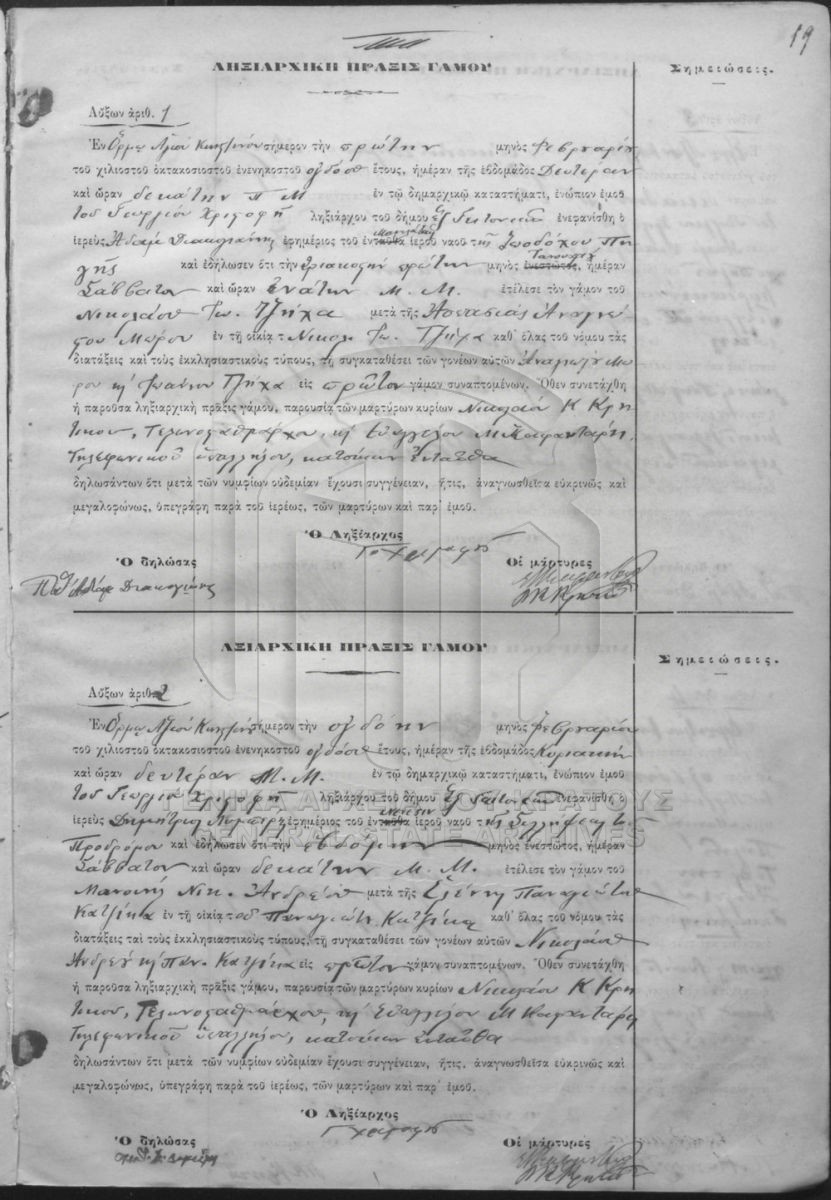 19
ΛΗΞΙΑΡΧΙΚΗ ΠΡΑΞΙΣ ΓΑΜΟΥ
Σημειώσεις.
Αὔξων ἀριθ. 1
Ἐν σήμερον τὴν πρώτην μηνὸς Φεβρουαρίου
τοῦ χιλιοστοῦ ὀκτακοσιοστοῦ ἐνενηκοστοῦ ὀγδόου ἔτους, ἡμέραν τῆς ἑβδομάδος Δευτέραν
καὶ ὥραν δεκάτην Π Μ ἐν τῷ δημαρχικῷ καταστήματι, ἐνώπιον ἐμοῦ
τοῦ Γεωργίου ληξιάρχου τοῦ δήμου ἐνεφανίσθη ὁ
ἱερεὺς Ἀδὰμ Διακογιάννης ἐφημέριος τοῦ ἐνταῦθα ἱεροῦ ναοῦ τῆς Ζωοδόχου Πη
γῆς καὶ ἐδήλωσεν ὅτι τὴν τριακοστὴν πρώτην μηνὸς ἐνεστῶτος Ἰανουαρίου, ἡμέραν
Σάββατον καὶ ὥραν ἐνάτην Μ. Μ. ἐτέλεσε τὸν γάμον τοῦ
Νικολάου Ἰω. Τζήχα μετὰ τῆς Ἀσπασίας Ἀναγνώ
στου Μώρου ἐν τῇ οἰκίᾳ τ Νικολ Ἰω. Τζήχα καθ' ὅλας τοῦ νόμου τὰς
διατάξεις καὶ τοὺς ἐκκλησιαστικοὺς τύπους, τῇ συγκαταθέσει τῶν γονέων αὐτῶν Μώ
ρου κ Ἰωάννου Τζήχα εἰς πρῶτον γάμον συναπτομένων. Ὅθεν συνετάχθη
ἡ παροῦσα ληξιαρχικὴ πρᾶξις γάμου, παρουσίᾳ τῶν μαρτύρων κυρίων Νικολάου Κ Κρη
τικοῦ, Τελωνοσταθμάρχου, κ Εὐαγγέλου Μ
Τηλεφωνικοῦ ὑπαλλήλου, κατοίκων ἐνταῦθα
δηλωσάντων ὅτι μετὰ τῶν νυμφίων οὐδεμίαν ἔχουσι συγγένειαν, ἥτις, ἀναγνωσθεῖσα εὐκρινῶς καὶ
μεγαλοφώνως, ὑπεγράφη παρὰ τοῦ ἱερέως, τῶν μαρτύρων καὶ παρ' ἐμοῦ.
Ὁ Ληξίαρχος
Ὁ δηλώσας
Οἱ μάρτυρες
Ἀδάμ Διακογιάνης
ΑΞΙΑΡΧΙΚΗ ΠΡΑΞΙΣ ΓΑΜΟΥ
Σημειώσεις.
Αὔξων ἀριθ. 2
Ἐν σήμερον τὴν ὀγδόην μηνὸς Φεβρουαρίου
τοῦ χιλιοστοῦ ὀκτακοσιοστοῦ ἐνενηκοστοῦ ὀγδόου ἔτους, ἡμέραν τῆς ἑβδομάδος Κυριακὴν
καὶ ὥραν δευτέραν Μ. Μ. ἐν τῷ δημαρχικῷ καταστήματι, ἐνώπιον ἐμοῦ
τοῦ Γεωργίου ληξιάρχου τοῦ δήμου ἐνεφανίσθη ὁ
ΓΕΝΙΚΑ ΑΡΧΕΙΑ ΤΟΥ ΚΡΑΤΟΥΣ
ἱερεὺς Δημήτριος ἐφημέριος τοῦ ἐνταῦθα ἱεροῦ ναοῦ τῆς Συλλήψεως τοῦ
GENERAL STATE ARCHIVES
Προδρόμου καὶ ἐδήλωσεν ὅτι τὴν ἑβδόμην μηνὸς ἐνεστῶτος, ἡμέραν
Σάββατον καὶ ὥραν δεκάτην Μ. Μ. ἐτέλεσε τὸν γάμον τοῦ
Νικ. Ἀνδρέου μετὰ τῆς Ἑλένης Παναγιώτου
Κατζίκα ἐν τῇ οἰκίᾳ τοῦ Παναγιώτ. Κατζίκα καθ' ὅλας τοῦ νόμου τὰς
διατάξεις ταὶ τοὺς ἐκκλησιαστικοὺς τύπους, τῇ συγκαταθέσει τῶν γονέων αὐτῶν Νικολάου
Ἀνδρέου κ Παν. Κατζίκα εἰς πρῶτον γάμον συναπτομένων. Ὅθεν συνετάχθη
ἡ παροῦσα ληξιαρχικὴ πρᾶξις γάμου, παρουσίᾳ τῶν μαρτύρων κυρίων Νικολάου Κ Κρη
τικοῦ, Τελωνοσταθμάρχου, κ Εὐαγγέλου Μ
Τηλεφωνικοῦ ὑπαλλήλου, κατοίκων ἐνταῦθα
δηλωσάντων ὅτι μετὰ τῶν νυμφίων οὐδεμίαν ἔχουσι συγγένειαν, ἥτις, ἀναγνωσθεῖσα εὐκρινῶς καὶ
μεγαλοφώνως, ὑπεγράφη παρὰ τοῦ ἱερέως, τῶν μαρτύρων καὶ παρ' ἐμοῦ.
Ὁ Ληξίαρχος
Ὁ δηλώσας
Οἱ μάρτυρες